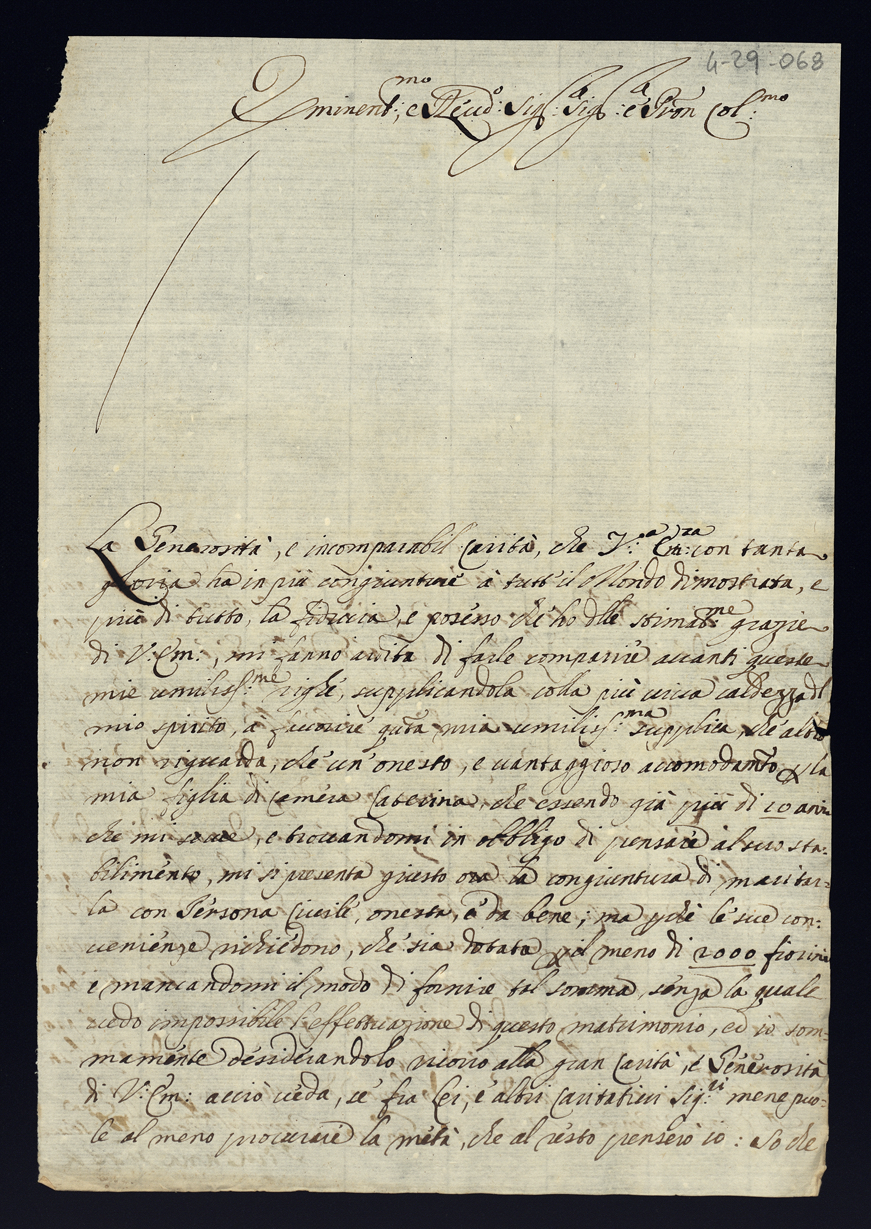 4-29-068
Eminent:mo, e Reud:o Sig:r Sig:r e Pron Col:mo
La Generosità, e incomparabil Carità, che V:a Em:za con tanta
gloria ha in più congiunture à tutt'il Mondo dimostrata, e
più di tutto, la fiducia, e posesso che ho dlle stimat:me grazie
di V: Em:, mi fanno ardita di farle comparire avanti queste
mie umilisf:me righe, supplicandola colla più viva caldezza dl
mio spirito, à favorire qsta mia umilisf:ma supplica, che altro
non riguarda, che un'onesto, e vantaggioso accomodamto p la
mia figlia di Camera Caterina, che essendo già più di 10 anni
che mi serve, e trovandomi in obbligo di pensare al suo sta:
bilimento, mi si presenta giusto ora la congiuntura di maritar:
la con Persona Civile, onesta, e da bene; ma pchè le sue con:
venienze richiedono, che sia dotata p il meno di 2000 fiorini
e mancandomi il modo di fornire tal somma, senza la quale
vedo impossibile l'effettuazione di questo matrimonio, ed io som:
mamente desiderandolo ricorro alla gran Carità, e Generosità
di V: Em: acciò veda, se fra Lei, e altri Caritativi Sig:ri mene puo:
le al meno procurare la metà, che al resto penserò io: So che